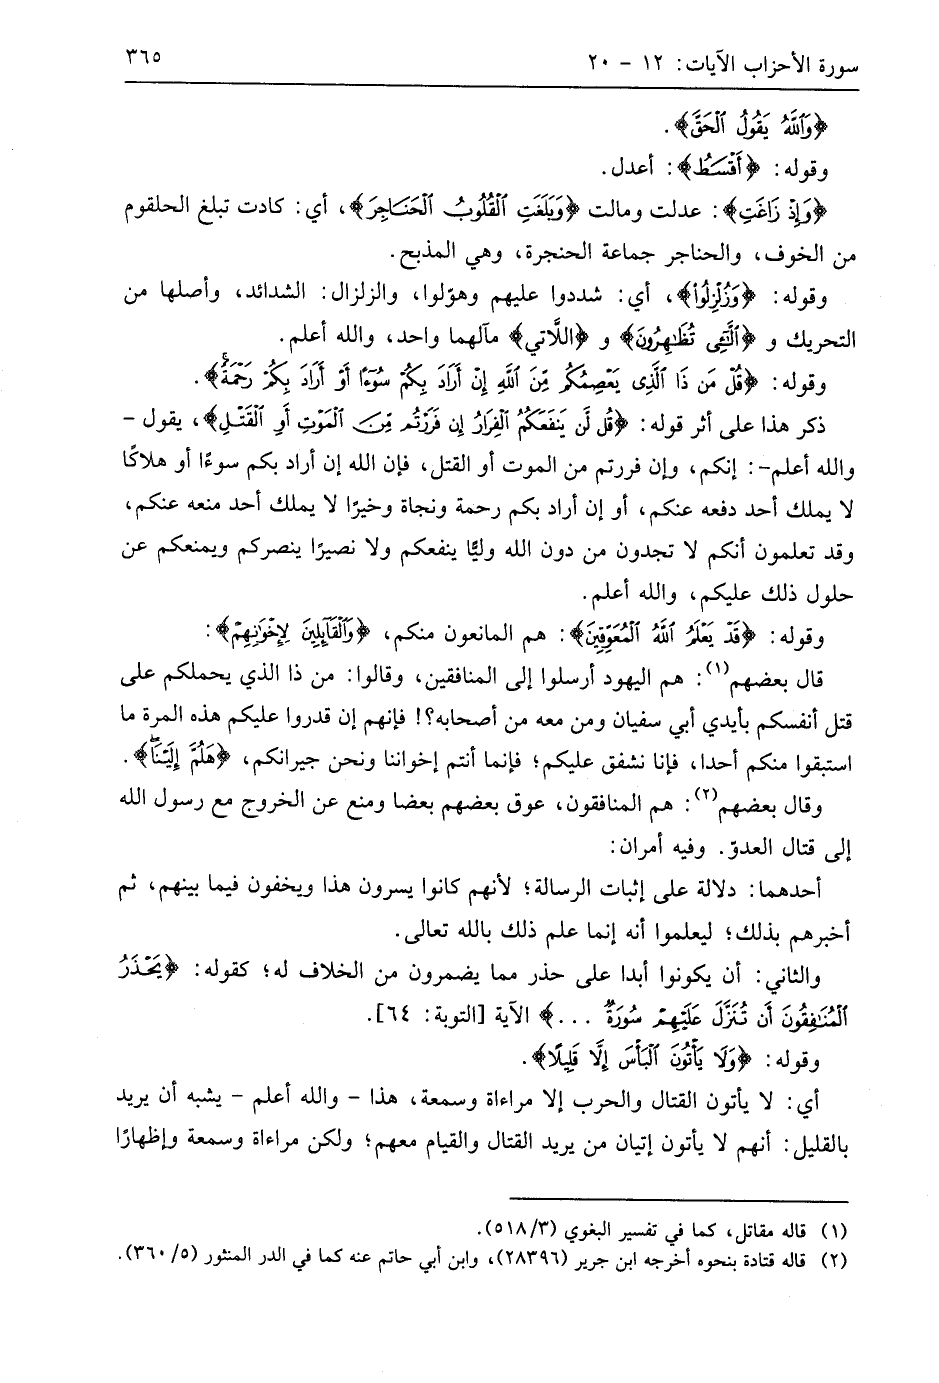 سورة الأحزاب الآيات: ١٢ - ٢٠ ٣٦٥
﴿وَٱللَّهُ يَقُولُ ٱلْحَقَّ﴾.
وقوله: ﴿أَقْسَطُ﴾: أعدل.
﴿وَإِذْ زَاغَتِ﴾: عدلت ومالت ﴿وَبَلَغَتِ ٱلْقُلُوبُ ٱلْحَنَاجِرَ﴾، أي: كادت تبلغ الحلقوم
من الخوف، والحناجر جماعة الحنجرة، وهي المذبح.
وقوله: ﴿وَزُلْزِلُوا۟﴾، أي: شددوا عليهم وهوّلوا، والزلزال: الشدائد، وأصلها من
التحريك و ﴿ٱلَّٰٓـِٔى تُظَٰهِرُونَ﴾ و ﴿اللَّاتي﴾ مآلهما واحد، والله أعلم.
وقوله: ﴿قُلْ مَن ذَا ٱلَّذِى يَعْصِمُكُم مِّنَ ٱللَّهِ إِنْ أَرَادَ بِكُمْ سُوٓءًا أَوْ أَرَادَ بِكُمْ رَحْمَةً ۚ﴾.
ذكر هذا على أثر قوله: ﴿قُل لَّن يَنفَعَكُمُ ٱلْفِرَارُ إِن فَرَرْتُم مِّنَ ٱلْمَوْتِ أَوِ ٱلْقَتْلِ﴾، يقول -
والله أعلم-: إنكم، وإن فررتم من الموت أو القتل، فإن الله إن أراد بكم سوءًا أو هلاكًا
لا يملك أحد دفعه عنكم، أو إن أراد بكم رحمة ونجاة وخيرًا لا يملك أحد منعه عنكم،
وقد تعلمون أنكم لا تجدون من دون الله وليًّا ينفعكم ولا نصيرًا ينصركم ويمنعكم عن
حلول ذلك عليكم، والله أعلم.
وقوله: ﴿قَدْ يَعْلَمُ ٱللَّهُ ٱلْمُعَوِّقِينَ﴾: هم المانعون منكم، ﴿وَٱلْقَآئِلِينَ لِإِخْوَٰنِهِمْ﴾:
قال بعضهم(١): هم اليهود أرسلوا إلى المنافقين، وقالوا: من ذا الذي يحملكم على
قتل أنفسكم بأيدي أبي سفيان ومن معه من أصحابه؟! فإنهم إن قدروا عليكم هذه المرة ما
استبقوا منكم أحدا، فإنا نشفق عليكم؛ فإنما أنتم إخواننا ونحن جيرانكم، ﴿هَلُمَّ إِلَيْنَا ۖ﴾.
وقال بعضهم(٢): هم المنافقون، عوق بعضهم بعضا ومنع عن الخروج مع رسول الله
إلى قتال العدوّ. وفيه أمران:
أحدهما: دلالة على إثبات الرسالة؛ لأنهم كانوا يسرون هذا ويخفون فيما بينهم، ثم
أخبرهم بذلك؛ ليعلموا أنه إنما علم ذلك بالله تعالى.
والثاني: أن يكونوا أبدا على حذر مما يضمرون من الخلاف له؛ كقوله: ﴿يَحْذَرُ
ٱلْمُنَٰفِقُونَ أَن تُنَزَّلَ عَلَيْهِمْ سُورَةٌ ...﴾ الآية [التوبة: ٦٤].
وقوله: ﴿وَلَا يَأْتُونَ ٱلْبَأْسَ إِلَّا قَلِيلًا﴾.
أي: لا يأتون القتال والحرب إلا مراءاة وسمعة، هذا - والله أعلم - يشبه أن يريد
بالقليل: أنهم لا يأتون إتيان من يريد القتال والقيام معهم؛ ولكن مراءاة وسمعة وإظهارًا
(١) قاله مقاتل، كما في تفسير البغوي (٥١٨/٣).
(٢) قاله قتادة بنحوه أخرجه ابن جرير (٢٨٣٩٦)، وابن أبي حاتم عنه كما في الدر المنثور (٣٦٠/٥).